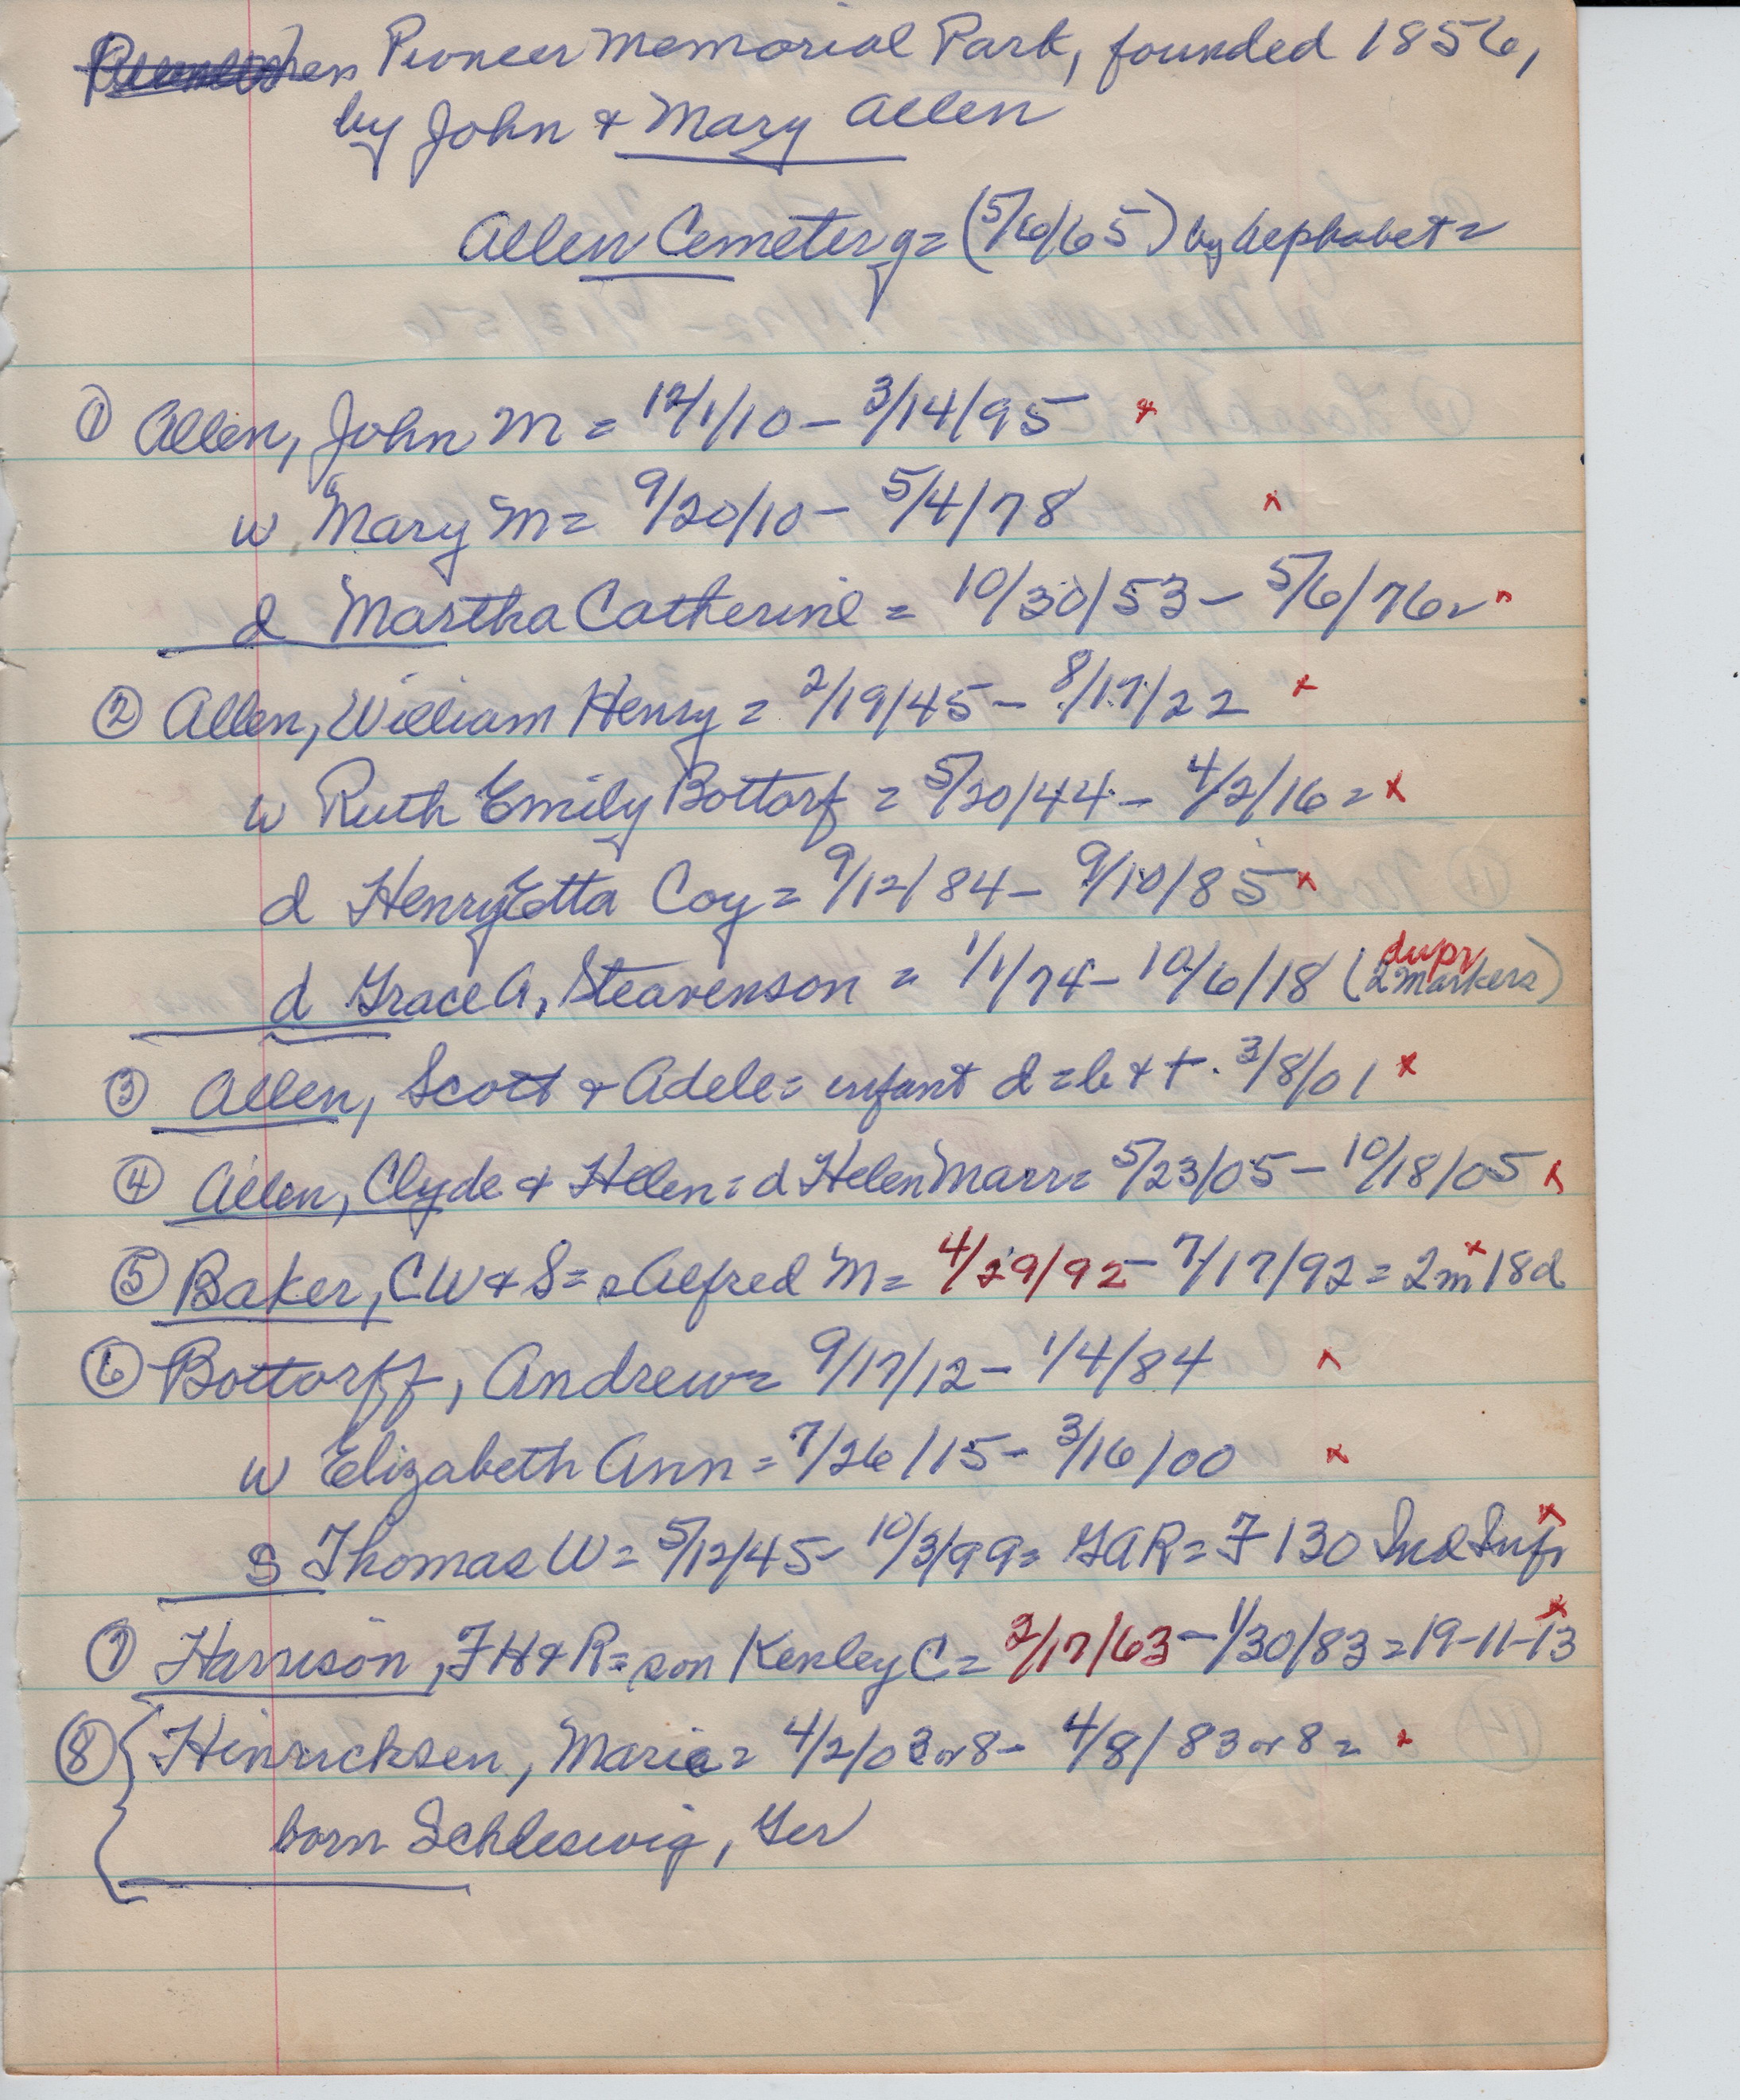 Pioneer Memorial Park, founded 1856,
by John & Mary Allen
Allen Cemetery = (5/6/65) by alephabet =
① Allen, John M = 12/1/10 - 3/14/95 x
w Mary M = 9/20/10 - 5/4/78 x
d Martha Catherine = 10/30/53 - 5/6/76 = x
② Allen, William Henry = 2/19/45 - 8/17/22 x
w Ruth Emily Bottorf = 5/20/44 - 4/2/16 = x
d HenryEtta Coy = 9/12/84 - 9/10/85 x
dupr
d Grace A, Steavenson = 1/1/74 - 10/6/18 (2 markers)
③ Allen, Scott & Adele = infant d = b & t. 3/8/01 x
④ Allen, Clyde & Helen = d Helen Marr = 5/23/05 - 10/18/05 x
⑤ Baker, CW & S = s Alfred M = 4/29/92 - 7/17/92 = 2m 18d x
⑥ Bottorff, Andrew = 9/17/12 - 1/4/84 x
w Elizabeth Ann = 7/26/15 - 3/16/00 x
s Thomas W = 5/12/45 - 10/3/99 = GAR = F 130 Ind Inf, x
⑦ Harrison, FH & R = son Kenley C = 2/17/63 - 1/30/83 = 19-11-13 x
⑧ Hinricksen, Marie = 4/2/03 or 8 - 4/8/83 or 8 = x
born Schleswig, Ger